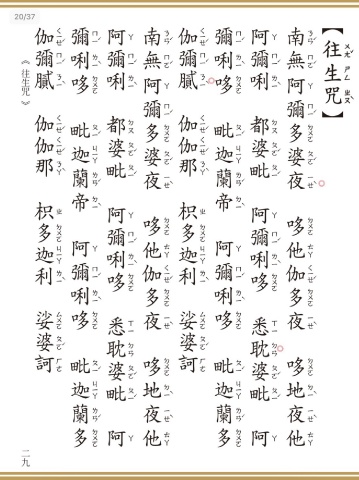 20/37
【往生咒】
南無阿彌多婆夜 哆他伽多夜 哆地夜他
阿彌唎 都婆毗 阿彌唎哆 悉耽婆毗 阿
彌唎哆 毗迦蘭帝 阿彌唎哆 毗迦蘭多
伽彌膩 伽伽那 枳多迦利 娑婆訶
南無阿彌多婆夜 哆他伽多夜 哆地夜他
阿彌唎 都婆毗 阿彌唎哆 悉耽婆毗 阿
彌唎哆 毗迦蘭帝 阿彌唎哆 毗迦蘭多
伽彌膩 伽伽那 枳多迦利 娑婆訶
《往生咒》
二九